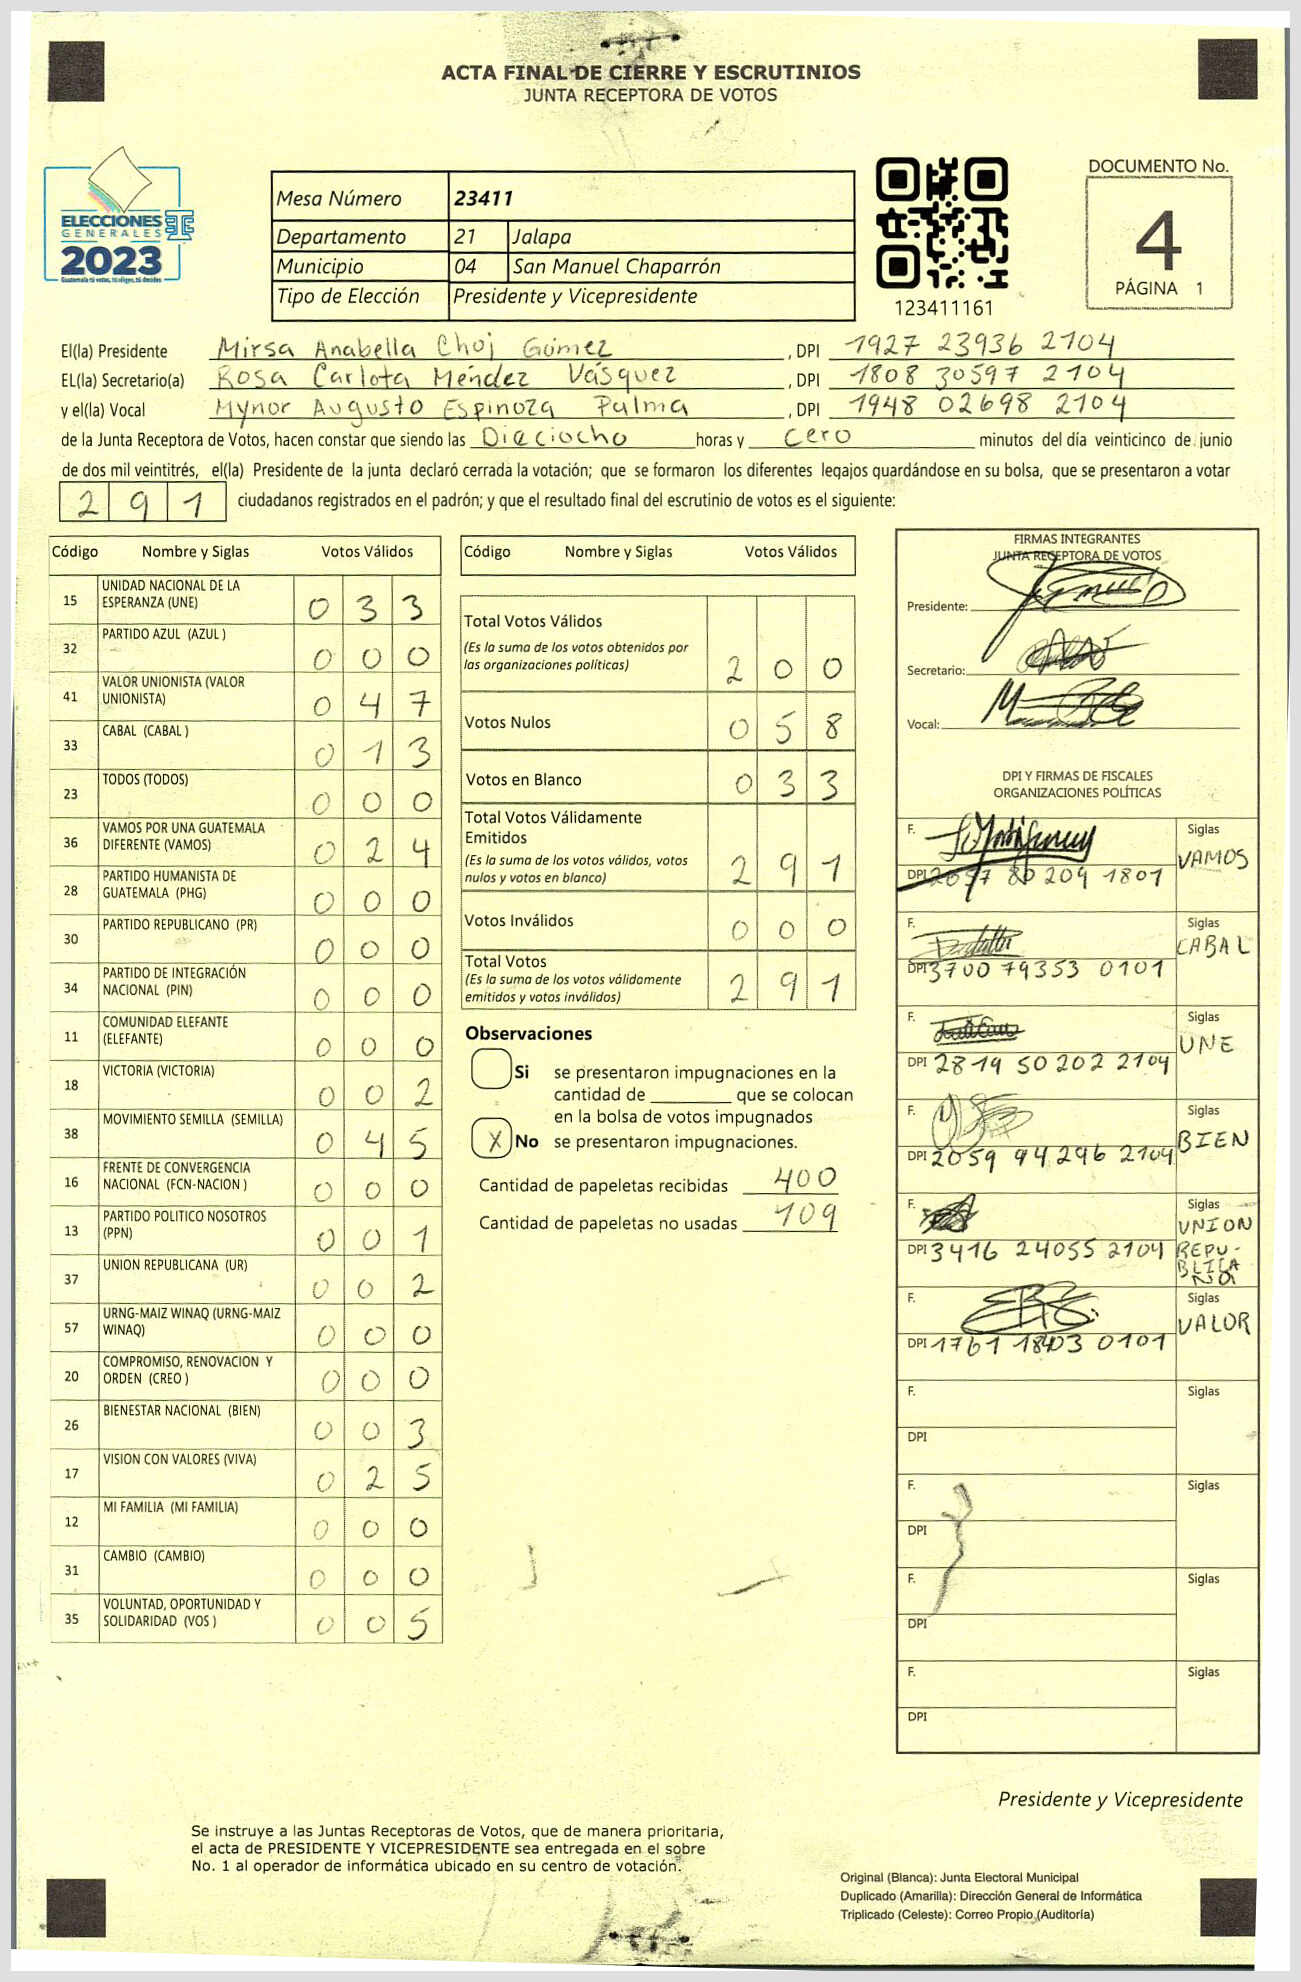 ACTA FINAL DE CIERRE Y ESCRUTINIOS
JUNTA RECEPTORA DE VOTOS
ELECCIONES
GENERALES
2023
Guatemala tú votas, tú eliges, tú decides
Mesa Número 23411
Departamento 21 Jalapa
Municipio 04 San Manuel Chaparrón
Tipo de Elección Presidente y Vicepresidente
123411161
DOCUMENTO No.
4
PÁGINA 1
El(la) Presidente Mirsa Anabella Choj Gómez , DPI 1927 23936 2104
EL(la) Secretario(a) Rosa Carlota Méndez Vásquez , DPI 1808 30597 2104
y el(la) Vocal Mynor Augusto Espinoza Palma , DPI 1948 02698 2104
de la Junta Receptora de Votos, hacen constar que siendo las Dieciocho horas y Cero minutos del día veinticinco de junio
de dos mil veintitrés, el(la) Presidente de la junta declaró cerrada la votación; que se formaron los diferentes legajos guardándose en su bolsa, que se presentaron a votar
291 ciudadanos registrados en el padrón; y que el resultado final del escrutinio de votos es el siguiente:
Código Nombre y Siglas Votos Válidos
15 UNIDAD NACIONAL DE LA ESPERANZA (UNE) 033
32 PARTIDO AZUL (AZUL ) 000
41 VALOR UNIONISTA (VALOR UNIONISTA) 047
33 CABAL (CABAL ) 013
23 TODOS (TODOS) 000
36 VAMOS POR UNA GUATEMALA DIFERENTE (VAMOS) 024
28 PARTIDO HUMANISTA DE GUATEMALA (PHG) 000
30 PARTIDO REPUBLICANO (PR) 000
34 PARTIDO DE INTEGRACIÓN NACIONAL (PIN) 000
11 COMUNIDAD ELEFANTE (ELEFANTE) 000
18 VICTORIA (VICTORIA) 002
38 MOVIMIENTO SEMILLA (SEMILLA) 045
16 FRENTE DE CONVERGENCIA NACIONAL (FCN-NACION ) 000
13 PARTIDO POLITICO NOSOTROS (PPN) 001
37 UNION REPUBLICANA (UR) 002
57 URNG-MAIZ WINAQ (URNG-MAIZ WINAQ) 000
20 COMPROMISO, RENOVACION Y ORDEN (CREO ) 000
26 BIENESTAR NACIONAL (BIEN) 003
17 VISION CON VALORES (VIVA) 025
12 MI FAMILIA (MI FAMILIA) 000
31 CAMBIO (CAMBIO) 000
35 VOLUNTAD, OPORTUNIDAD Y SOLIDARIDAD (VOS ) 005
Código Nombre y Siglas Votos Válidos
Total Votos Válidos 200
(Es la suma de los votos obtenidos por
las organizaciones políticas)
Votos Nulos 058
Votos en Blanco 033
Total Votos Válidamente
Emitidos 291
(Es la suma de los votos válidos, votos
nulos y votos en blanco)
Votos Inválidos 000
Total Votos 291
(Es la suma de los votos válidamente
emitidos y votos inválidos)
Observaciones
Si se presentaron impugnaciones en la
cantidad de ________ que se colocan
en la bolsa de votos impugnados
X No se presentaron impugnaciones.
Cantidad de papeletas recibidas 400
Cantidad de papeletas no usadas 109
FIRMAS INTEGRANTES
JUNTA RECEPTORA DE VOTOS
Presidente:
Secretario:
Vocal:
DPI Y FIRMAS DE FISCALES
ORGANIZACIONES POLÍTICAS
F. Siglas
VAMOS
DPI 2697 80 209 1801
F. Siglas
CABAL
DPI 3700 79353 0101
F. Siglas
UNE
DPI 2819 50202 2104
F. Siglas
BIEN
DPI 2059 94296 2104
F. Siglas
UNION
DPI 3416 24055 2104 REPU-
BLICA
NA
F. Siglas
VALOR
DPI 1761 1803 0101
F. Siglas
DPI
F. Siglas
DPI
F. Siglas
DPI
F. Siglas
DPI
Presidente y Vicepresidente
Se instruye a las Juntas Receptoras de Votos, que de manera prioritaria,
el acta de PRESIDENTE Y VICEPRESIDENTE sea entregada en el sobre
No. 1 al operador de informática ubicado en su centro de votación.
Original (Blanca): Junta Electoral Municipal
Duplicado (Amarilla): Dirección General de Informática
Triplicado (Celeste): Correo Propio (Auditoría)